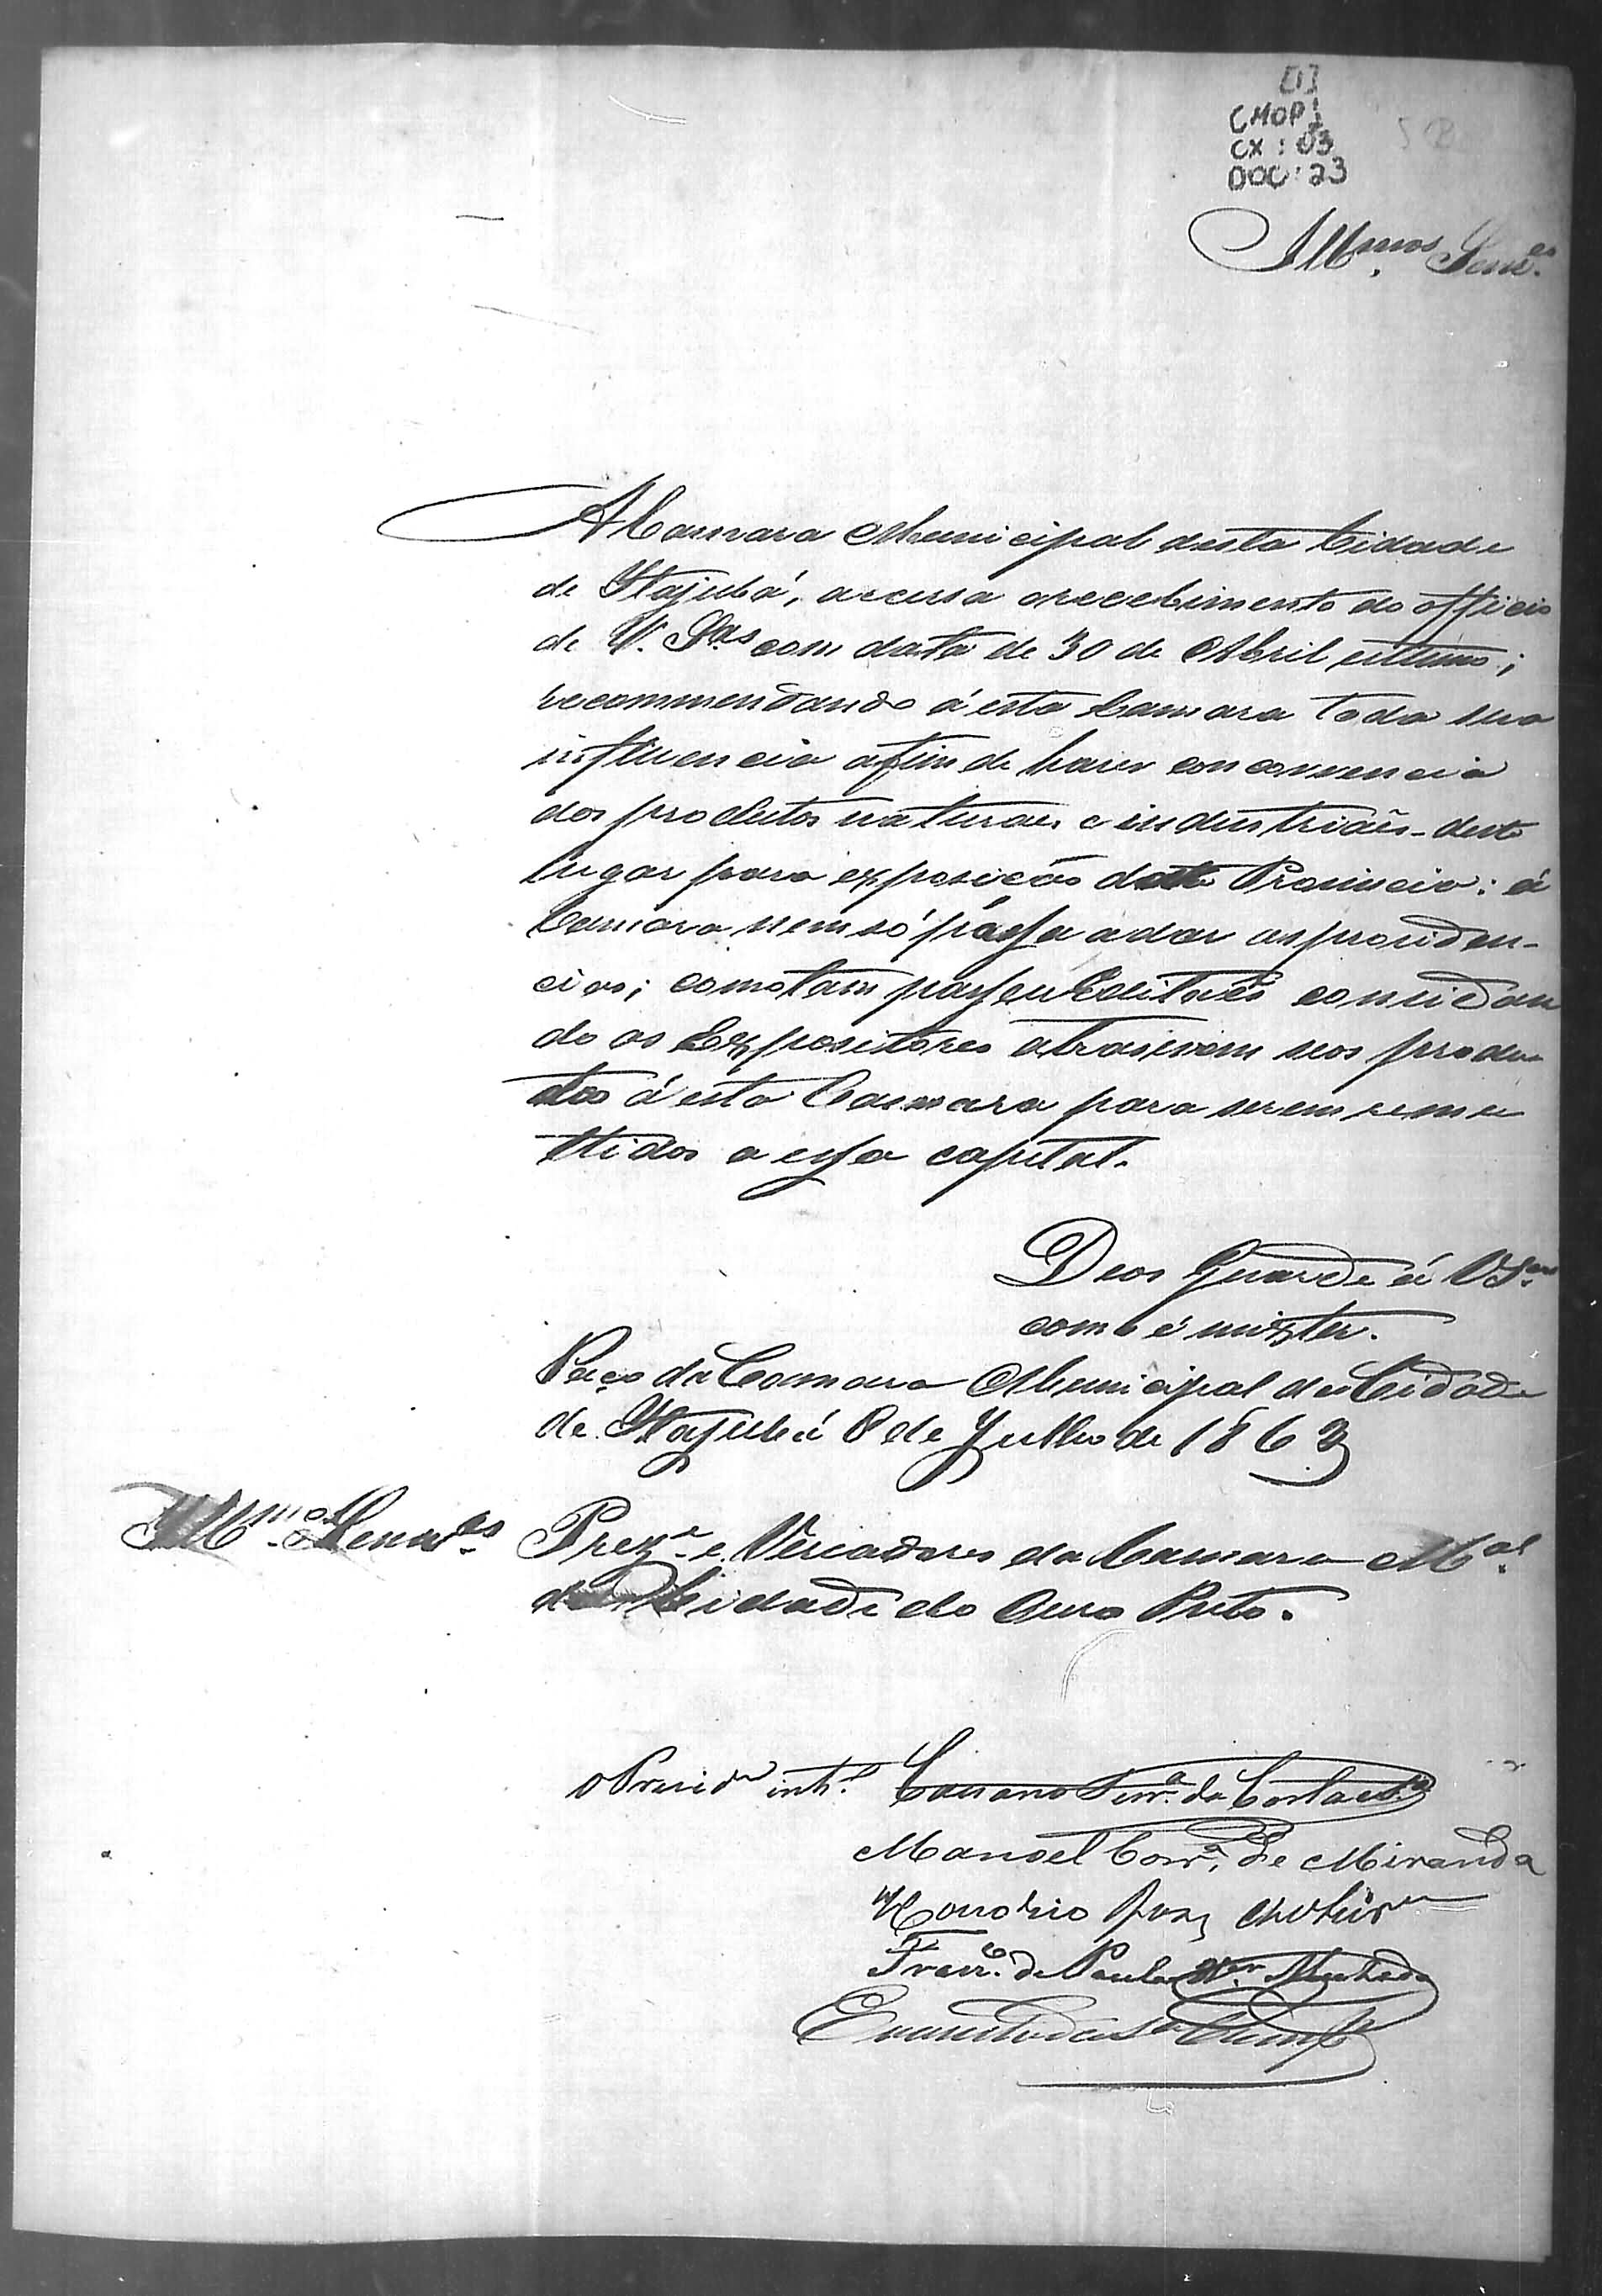 [1]
CMOP1
CX: 03
DOC: 23
Illmos Senres
A Camara Municipal desta Cidade
de Itajubá, accusa o recebimento do officio
de V. Sas com data de 30 de Abril ultimo;
recommendando á esta Camara toda sua
influencia afim de haver concorrencia
dos produtos naturaes e industriães deste
lugar para exposicão desta Provincia: á
Camara nem só passa a dar as providen-
cias; como tam passou Editaes convidan
do os Expositores a traserem seos produ
ctos á esta Camara para serem reme
ttidos a essa capital.
Deos Guarde á VSas
como é mister.
Paço da Camara Municipal da Cidade
de Itajubá 8 de Julho de 1863
Illmos Senres Preze e Veriadores da Camara Mal
da Cidade do Ouro Preto.
O Preside intº Ferra da Costa
Manoel Corra de Miranda
Honorio
Franco de Paula Machado